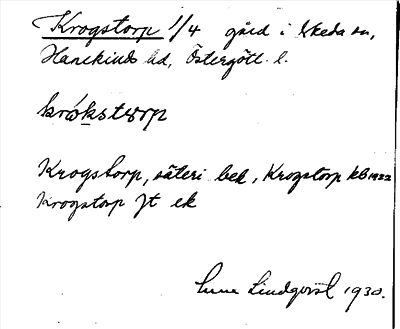 Krogstorp 1/4 gård i Skeda sn,
Hanekinds hd, Östergötl. l.
krὼkstωrp
Krogstorp, säteri bek, Krogstorp kb 1922
Krogstorp Jt ek
Sune Lindqvist 1930.